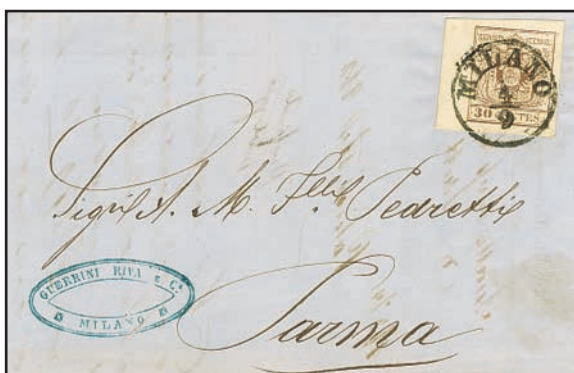 MILANO
4
9
30 CENTES
Sigri A. M. Flli Pedretti
Parma
GUERRINI RIVA E C.
MILANO